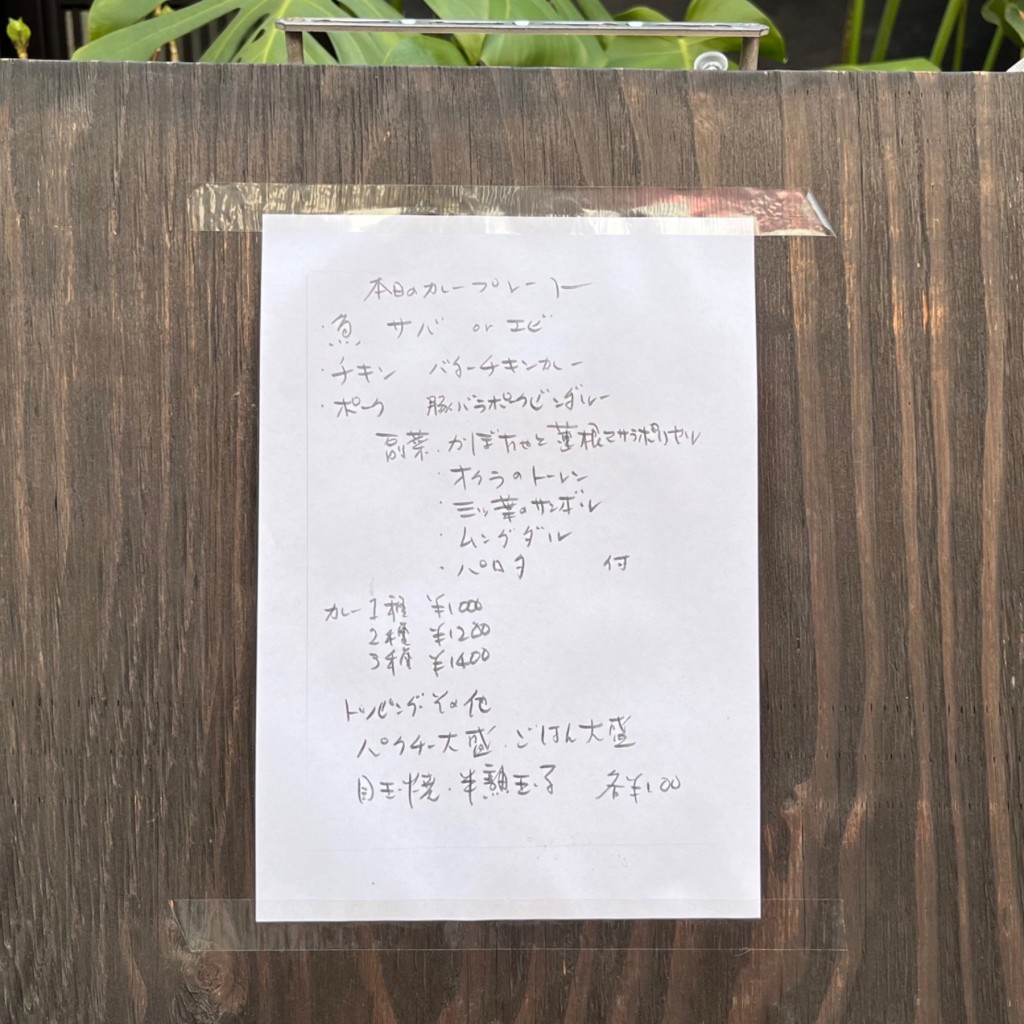 本日のカレープレート
・魚 サバ or エビ
・チキン バターチキンカレー
・ポーク 豚バラポークビンダルー
副菜・かぼちゃと蓮根でサラポリヤル
・オクラのトーレン
・三ッ葉のサンボル
・ムングダル
・パロタ 付
カレー1種 ¥1000
2種 ¥1200
3種 ¥1400
トッピング・その他
パクチー大盛・ごはん大盛
目玉焼・半熟玉子 各¥100